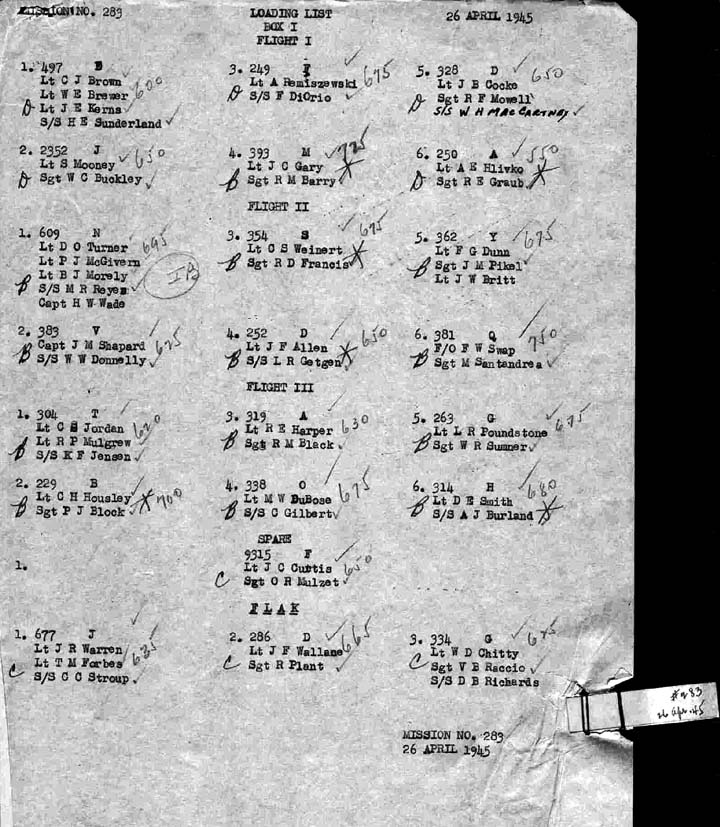 MISSION NO. 283 LOADING LIST 26 APRIL 1945
BOX I
FLIGHT I
1. 497 B 600
Lt C J Brown
Lt W E Brewer
D Lt J E Kerns
S/S H E Sunderland
2. 2352 J 650
Lt S Mooney
D Sgt W C Buckley
3. 249 F 675
Lt A Remiszewski
D S/S F DiOrio
4. 393 M 725
Lt J C Gary
B Sgt R M Barry
5. 328 D 650
Lt J B Cocke
D Sgt R F Mowell
S/S W H MACCARTNEY
6. 250 A 550
Lt A E Hlivko
D Sgt R E Graub
FLIGHT II
1. 609 N 695
Lt D O Turner
Lt P J McGivern
Lt B J Morely
B S/S M R Reyes
Capt H W Wade
2. 383 V 625
Capt J M Shapard
B S/S W W Donnelly
3. 354 S 675
Lt C S Weinert
B Sgt R D Francis
4. 252 D 650
Lt J F Allen
B S/S L R Getgen
5. 362 Y 675
Lt F G Dunn
B Sgt J M Pikel
Lt J W Britt
6. 381 Q 750
F/O F W Swap
B Sgt M Santandrea
FLIGHT III
1. 304 T 620
Lt C S Jordan
Lt R P Mulgrew
B S/S K F Jensen
2. 229 B 700
Lt C H Housley
B Sgt P J Block
3. 319 A 630
Lt R E Harper
B Sgt R M Black
4. 338 O 675
Lt M W DuBose
B S/S C Gilbert
5. 263 G 675
Lt L R Poundstone
B Sgt W R Sumner
6. 314 H 680
Lt D E Smith
B S/S A J Burland
SPARE
1. 9315 F 650
Lt J C Curtis
C Sgt O R Mulzet
FLAK
1. 677 J 635
Lt J R Warren
Lt T M Forbes
C S/S C C Stroup
2. 286 D 665
Lt J F Wallane
C Sgt R Plant
3. 334 G 675
Lt W D Chitty
C Sgt V B Raccio
S/S D B Richards
#283
26 Apr. 45
MISSION NO. 283
26 APRIL 1945